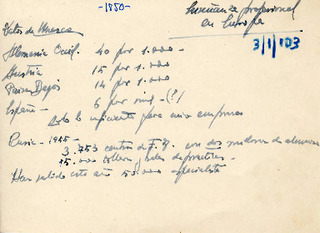 -1850-
Enseñanza profesional
en Europa
3/1/103
Datos de Unesco
Alemania Occil. 40 por 1.000
Austria 15 por 1.000
Paises Bajos 14 por 1.000
España - 6 por mil - (?)
Solo lo suficiente para unas empresas
Rusia - 1965
3.753 centros de F.P. con dos millones de alumnos
15.000 talleres, deportivas -
Han salido este año 50.000 especialistas